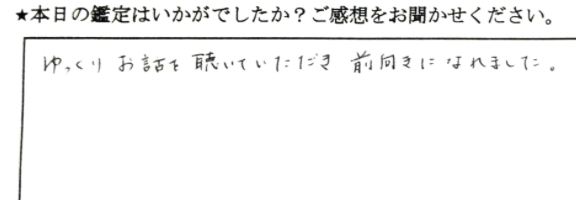 ★本日の鑑定はいかがでしたか？ご感想をお聞かせください。
ゆっくり お話を 聴いていただき 前向きに なれました。